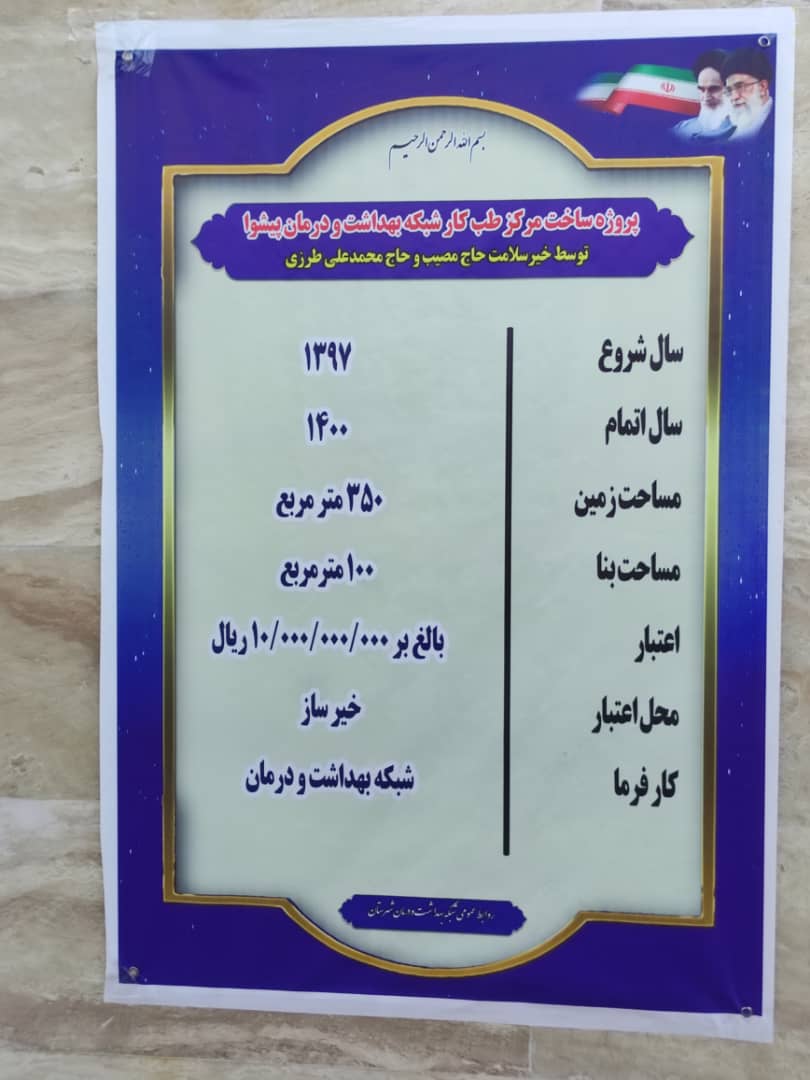 بسم الله الرحمن الرحیم
پروژه ساخت مرکز طب کار شبکه بهداشت و درمان پیشوا
توسط خیر سلامت حاج مصیب و حاج محمدعلی طرزی
سال شروع ۱۳۹۷
سال اتمام ۱۴۰۰
مساحت زمین ۳۵۰ متر مربع
مساحت بنا ۱۰۰ متر مربع
اعتبار بالغ بر ۱۰/۰۰۰/۰۰۰/۰۰۰ ریال
محل اعتبار خیر ساز
کار فرما شبکه بهداشت و درمان
روابط عمومی شبکه بهداشت و درمان شهرستان